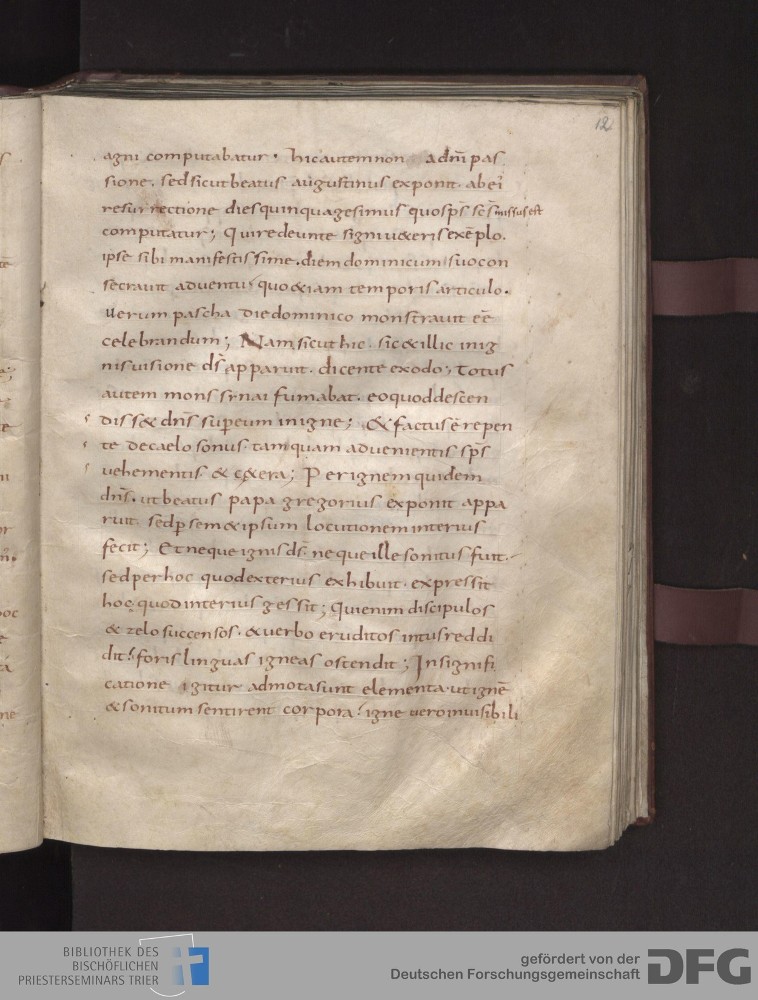 12
agni computabatur. hic autem non a dnī pas
sione. sed sicut beatus augustinus exponit. ab ei
resurrectione dies quinquagesimus quo sps scs missus est
computatur; Qui redeunte signi ueteris exēplo.
ipse sibi manifestissime. diem dominicum suo con
secrauit aduentu; quo etiam temporis articulo.
uerum pascha die dominico monstrauit eē
celebrandum; Nam sicut hic. sic et illic in ig
nis uisione ds apparuit. dicente exodo; Totus
autem mons synai fumabat. eo quod descen
disset dns super eum in igne; Et factus ē repen
te de caelo sonus. tamquam aduenientis sps
uehementis et cetera; Per ignem quidem
dns. ut beatus papa gregorius exponit appa
ruit. sed p semet ipsum locutionem interius
fecit; Et neque ignis ds. neque ille sonitus fuit.
sed per hoc quod exterius exhibuit. expressit
hoc quod interius gessit; Qui enim discipulos
et zelo succensos. et uerbo eruditos intus reddi
dit. foris linguas igneas ostendit; In signifi
catione igitur admota sunt elementa. ut ignē
et sonitum sentirent corpora. igne uero inuisibili
BIBLIOTHEK DES
BISCHÖFLICHEN
PRIESTERSEMINARS TRIER
gefördert von der
Deutschen Forschungsgemeinschaft
DFG